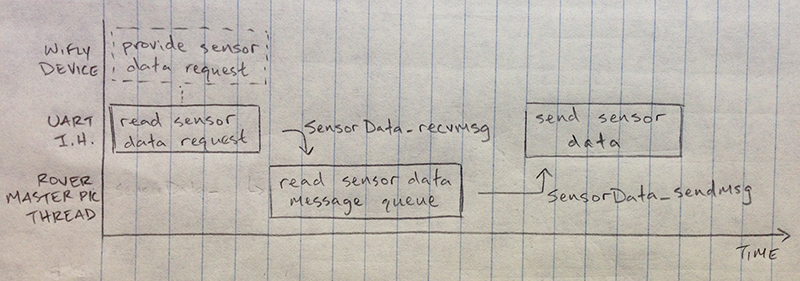 WIFLY
DEVICE
provide sensor
data request
UART
I.H.
read sensor
data request
SensorData_recvMsg
send sensor
data
ROVER
MASTER PIC
THREAD
read sensor data
message queue
SensorData_sendMsg
TIME